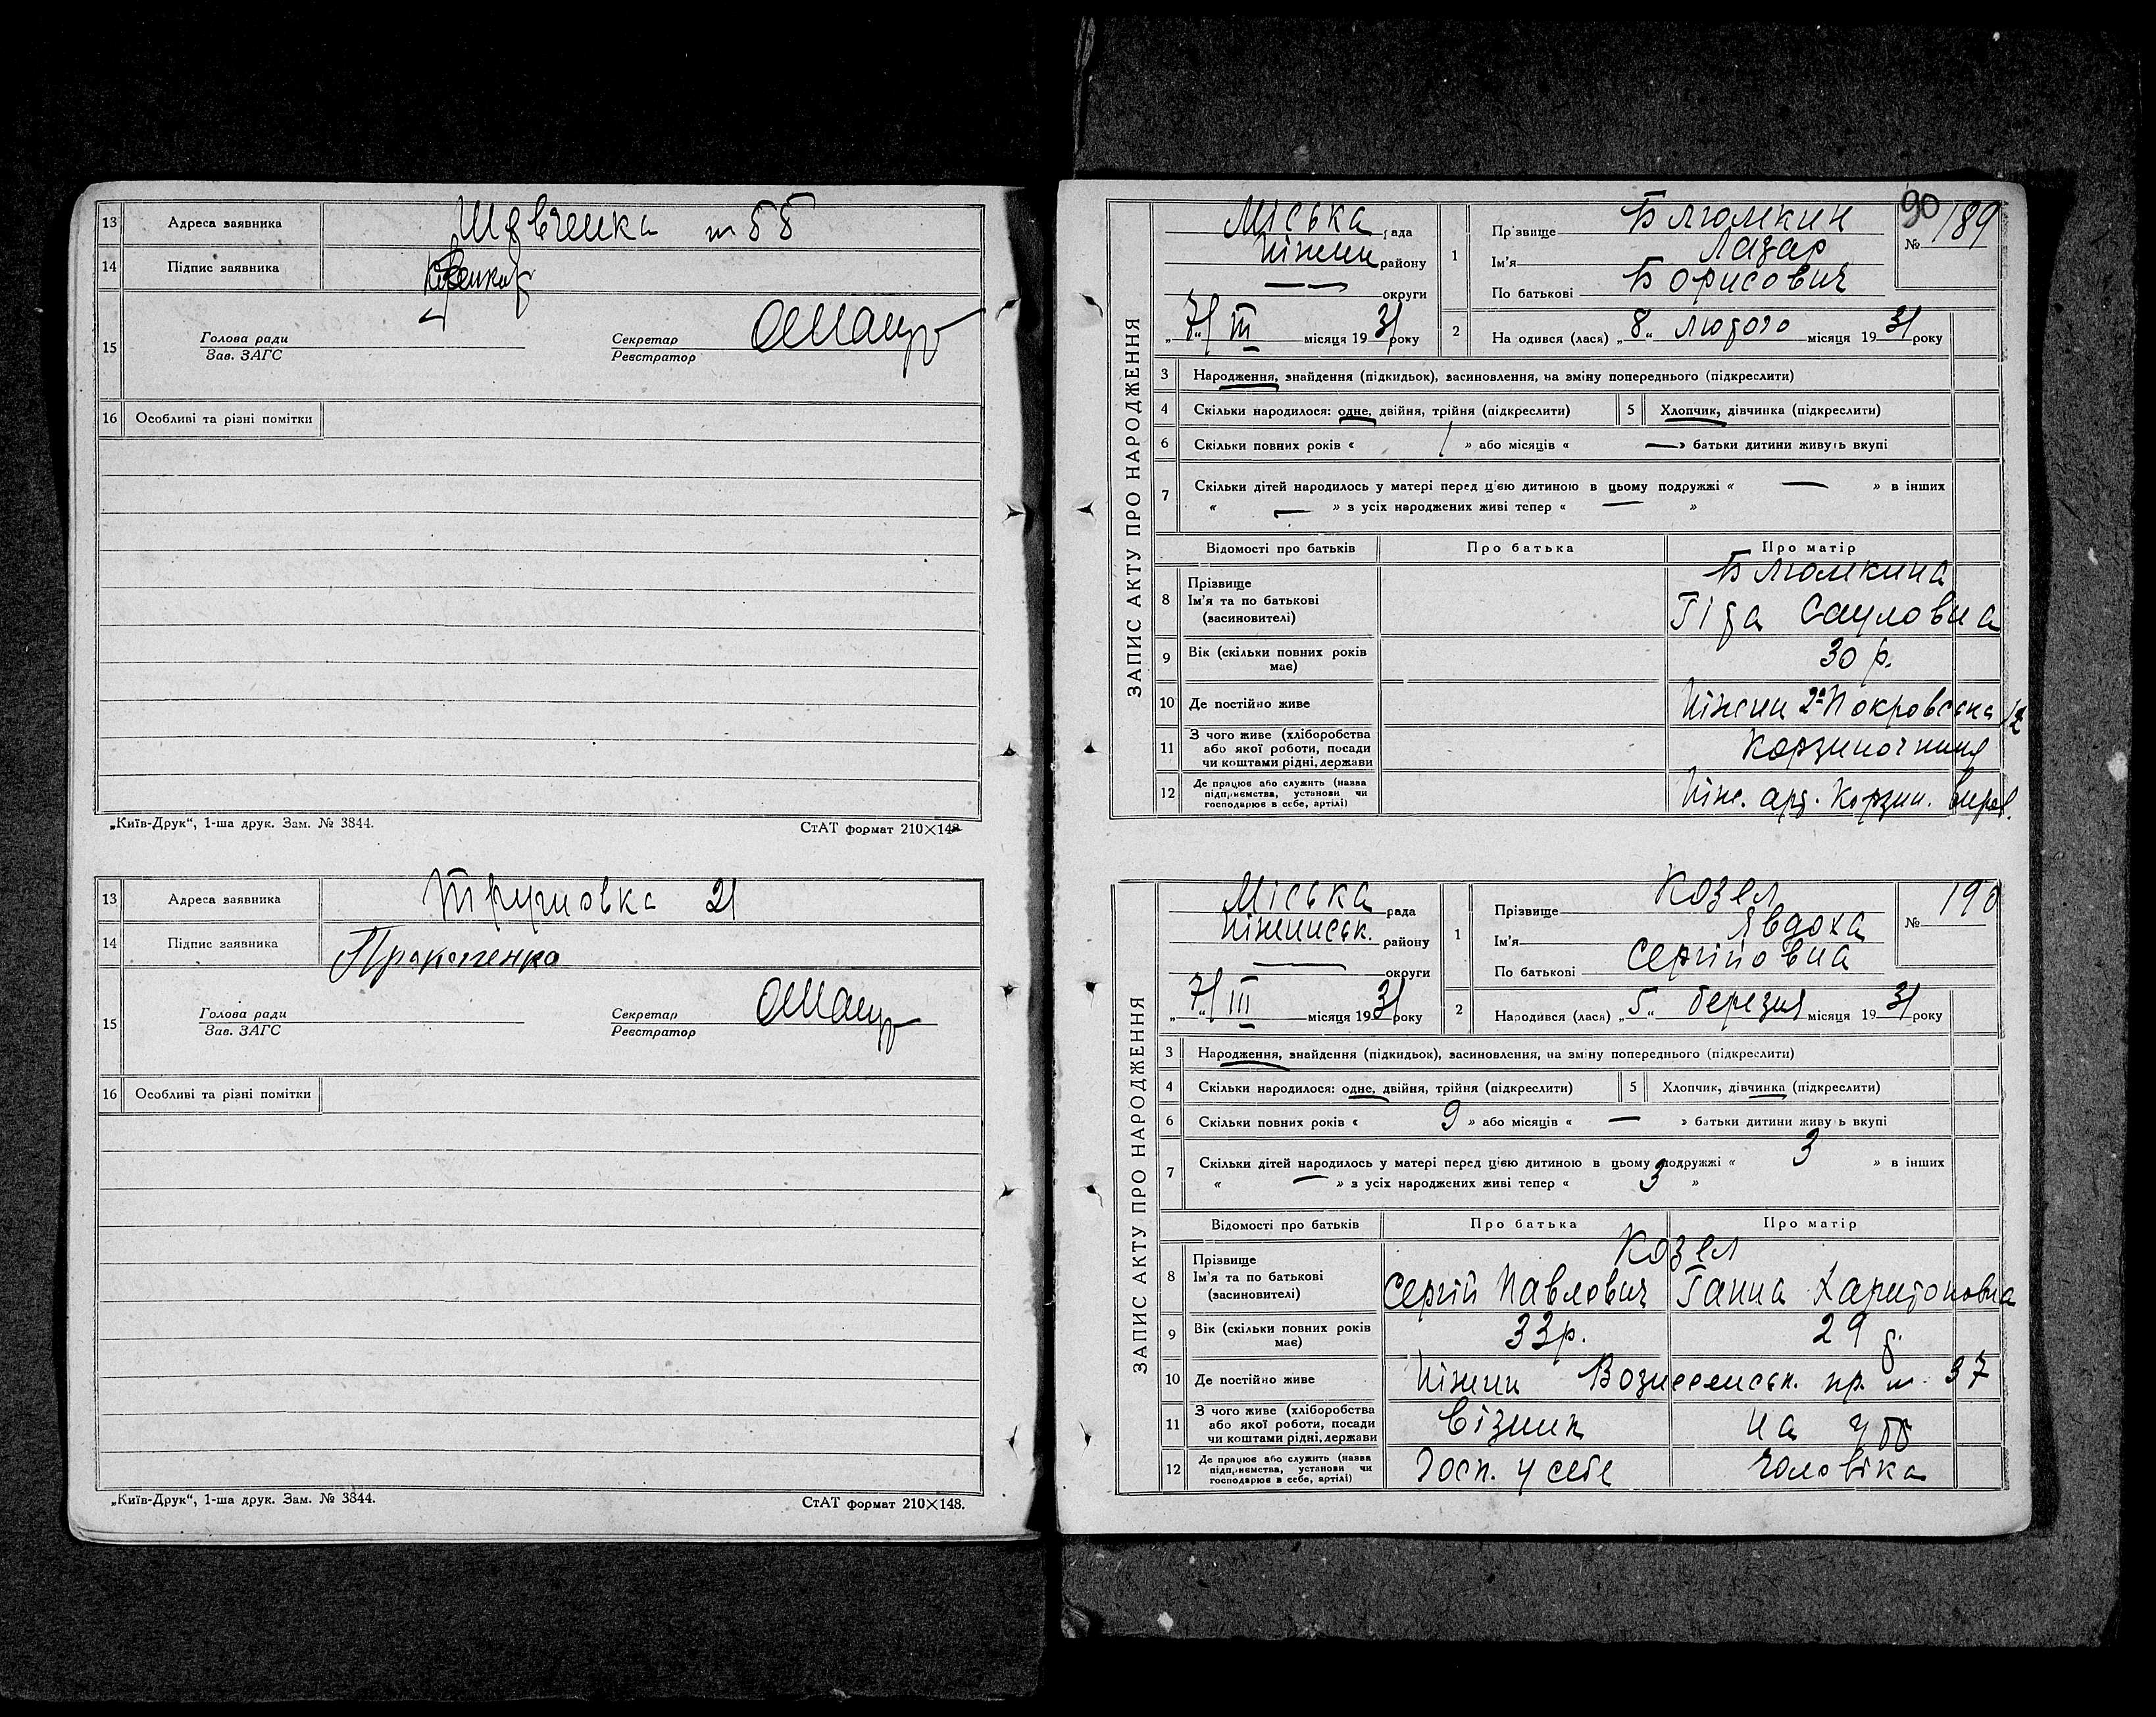 13 Адреса заявника Шевченка 55
14 Підпис заявника
15 Голова ради
Зав. ЗАГС
Секретар
Реєстратор
16 Особливі та різні помітки
„Київ-Друк“, 1-ша друк. Зам. № 3844.
СтАТ формат 210×148
13 Адреса заявника 21
14 Підпис заявника
15 Голова ради
Зав. ЗАГС
Секретар
Реєстратор
16 Особливі та різні помітки
„Київ-Друк“, 1-ша друк. Зам. № 3844.
СтАТ формат 210×148.
90
ЗАПИС АКТУ ПРО НАРОДЖЕННЯ
Міська рада
Ніжин району
— — округи
„7“ III місяця 1931 року
№ 189
1 Прізвище Блюмкин
Ім'я Лазар
По батькові Борисович
2 Народився (лася) „8“ лютого місяця 1931 року
3 Народження, знайдення (підкидьок), засиновлення, на зміну попереднього (підкреслити)
4 Скільки народилося: одне, двійня, трійня (підкреслити)
5 Хлопчик, дівчинка (підкреслити)
6 Скільки повних років « 1 » або місяців « — » батьки дитини живуть вкупі
7 Скільки дітей народилось у матері перед цією дитиною в цьому подружжі « — » в інших
« — » з усіх народжених живі тепер « — »
Відомості про батьків Про батька Про матір
8 Прізвище
Ім'я та по батькові
(засиновителі)
Блюмкина
Гіта Сауловна
9 Вік (скільки повних років
має)
30 р.
10 Де постійно живе Ніжин 2а Покровська 12
11 З чого живе (хліборобства
або якої роботи, посади
чи коштами рідні, держави
Корзиночниця
12 Де працює або служить (назва
підприємства, установи чи
господарює в себе, артілі)
Ніж. арт. Корзин. вироб.
ЗАПИС АКТУ ПРО НАРОДЖЕННЯ
Міська рада
Ніжинськ. району
— округи
„7“ III місяця 1931 року
№ 190
1 Прізвище Козел
Ім'я Явдоха
По батькові Сергіївна
2 Народився (лася) „5“ березня місяця 1931 року
3 Народження, знайдення (підкидьок), засиновлення, на зміну попереднього (підкреслити)
4 Скільки народилося: одне, двійня, трійня (підкреслити)
5 Хлопчик, дівчинка (підкреслити)
6 Скільки повних років « 9 » або місяців « — » батьки дитини живуть вкупі
7 Скільки дітей народилось у матері перед цією дитиною в цьому подружжі « 3 » в інших
« — » з усіх народжених живі тепер « 3 »
Відомості про батьків Про батька Про матір
8 Прізвище
Ім'я та по батькові
(засиновителі)
Козел
Сергій Павлович Ганна Харитоновна
9 Вік (скільки повних років
має)
33 р. 29 р.
10 Де постійно живе Ніжин Вознесенськ. пр. 37
11 З чого живе (хліборобства
або якої роботи, посади
чи коштами рідні, держави
Візник на утр
12 Де працює або служить (назва
підприємства, установи чи
господарює в себе, артілі)
Госп. у себе чоловіка